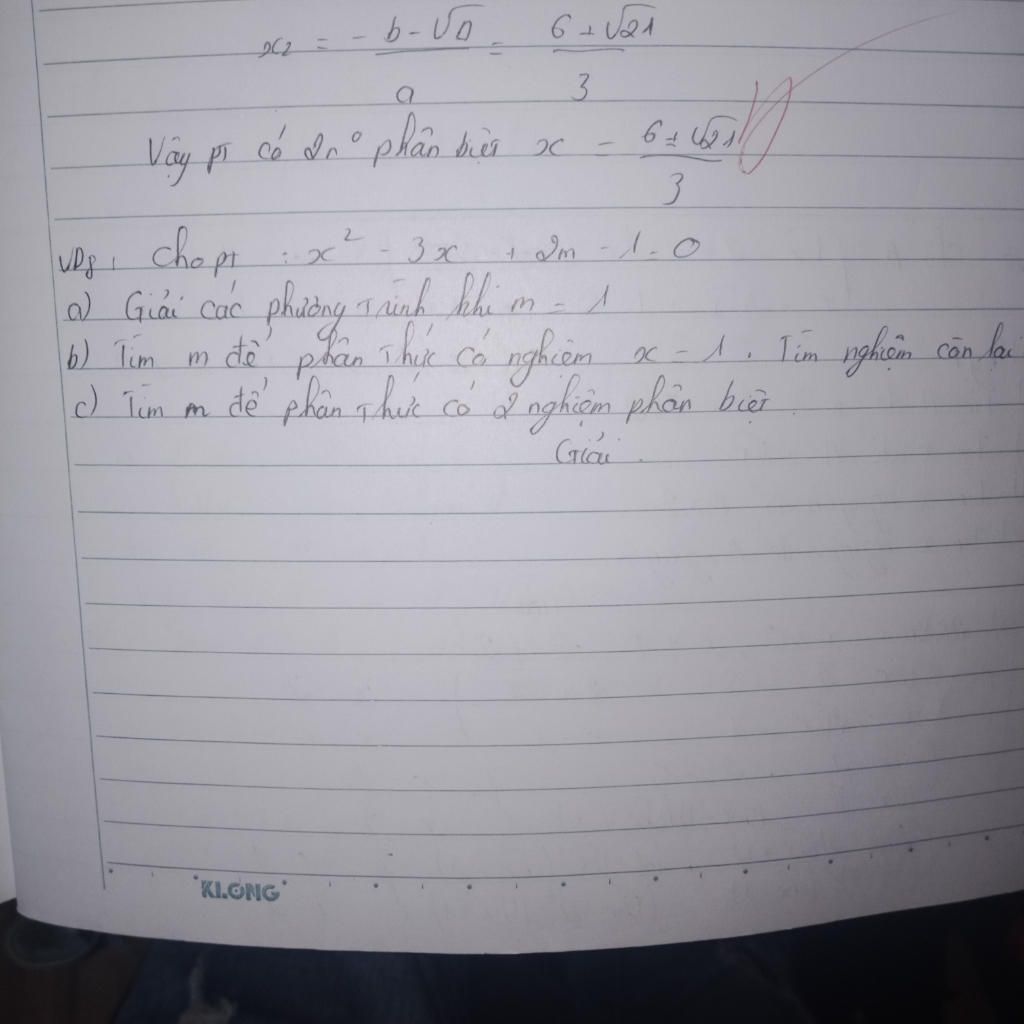 x₂ = - b - √Δ / a = 6 ± √21 / 3
Vậy pt có 2n⁰ phân biệt x = 6 ± √21 / 3
VD8: Cho pt : x² - 3x + 2m - 1 = 0
a) Giải các phương trình khi m = 1
b) Tìm m để phân thức có nghiệm x = 1. Tìm nghiệm còn lại
c) Tìm m để phân thức có 2 nghiệm phân biệt
Giải.
KLONG